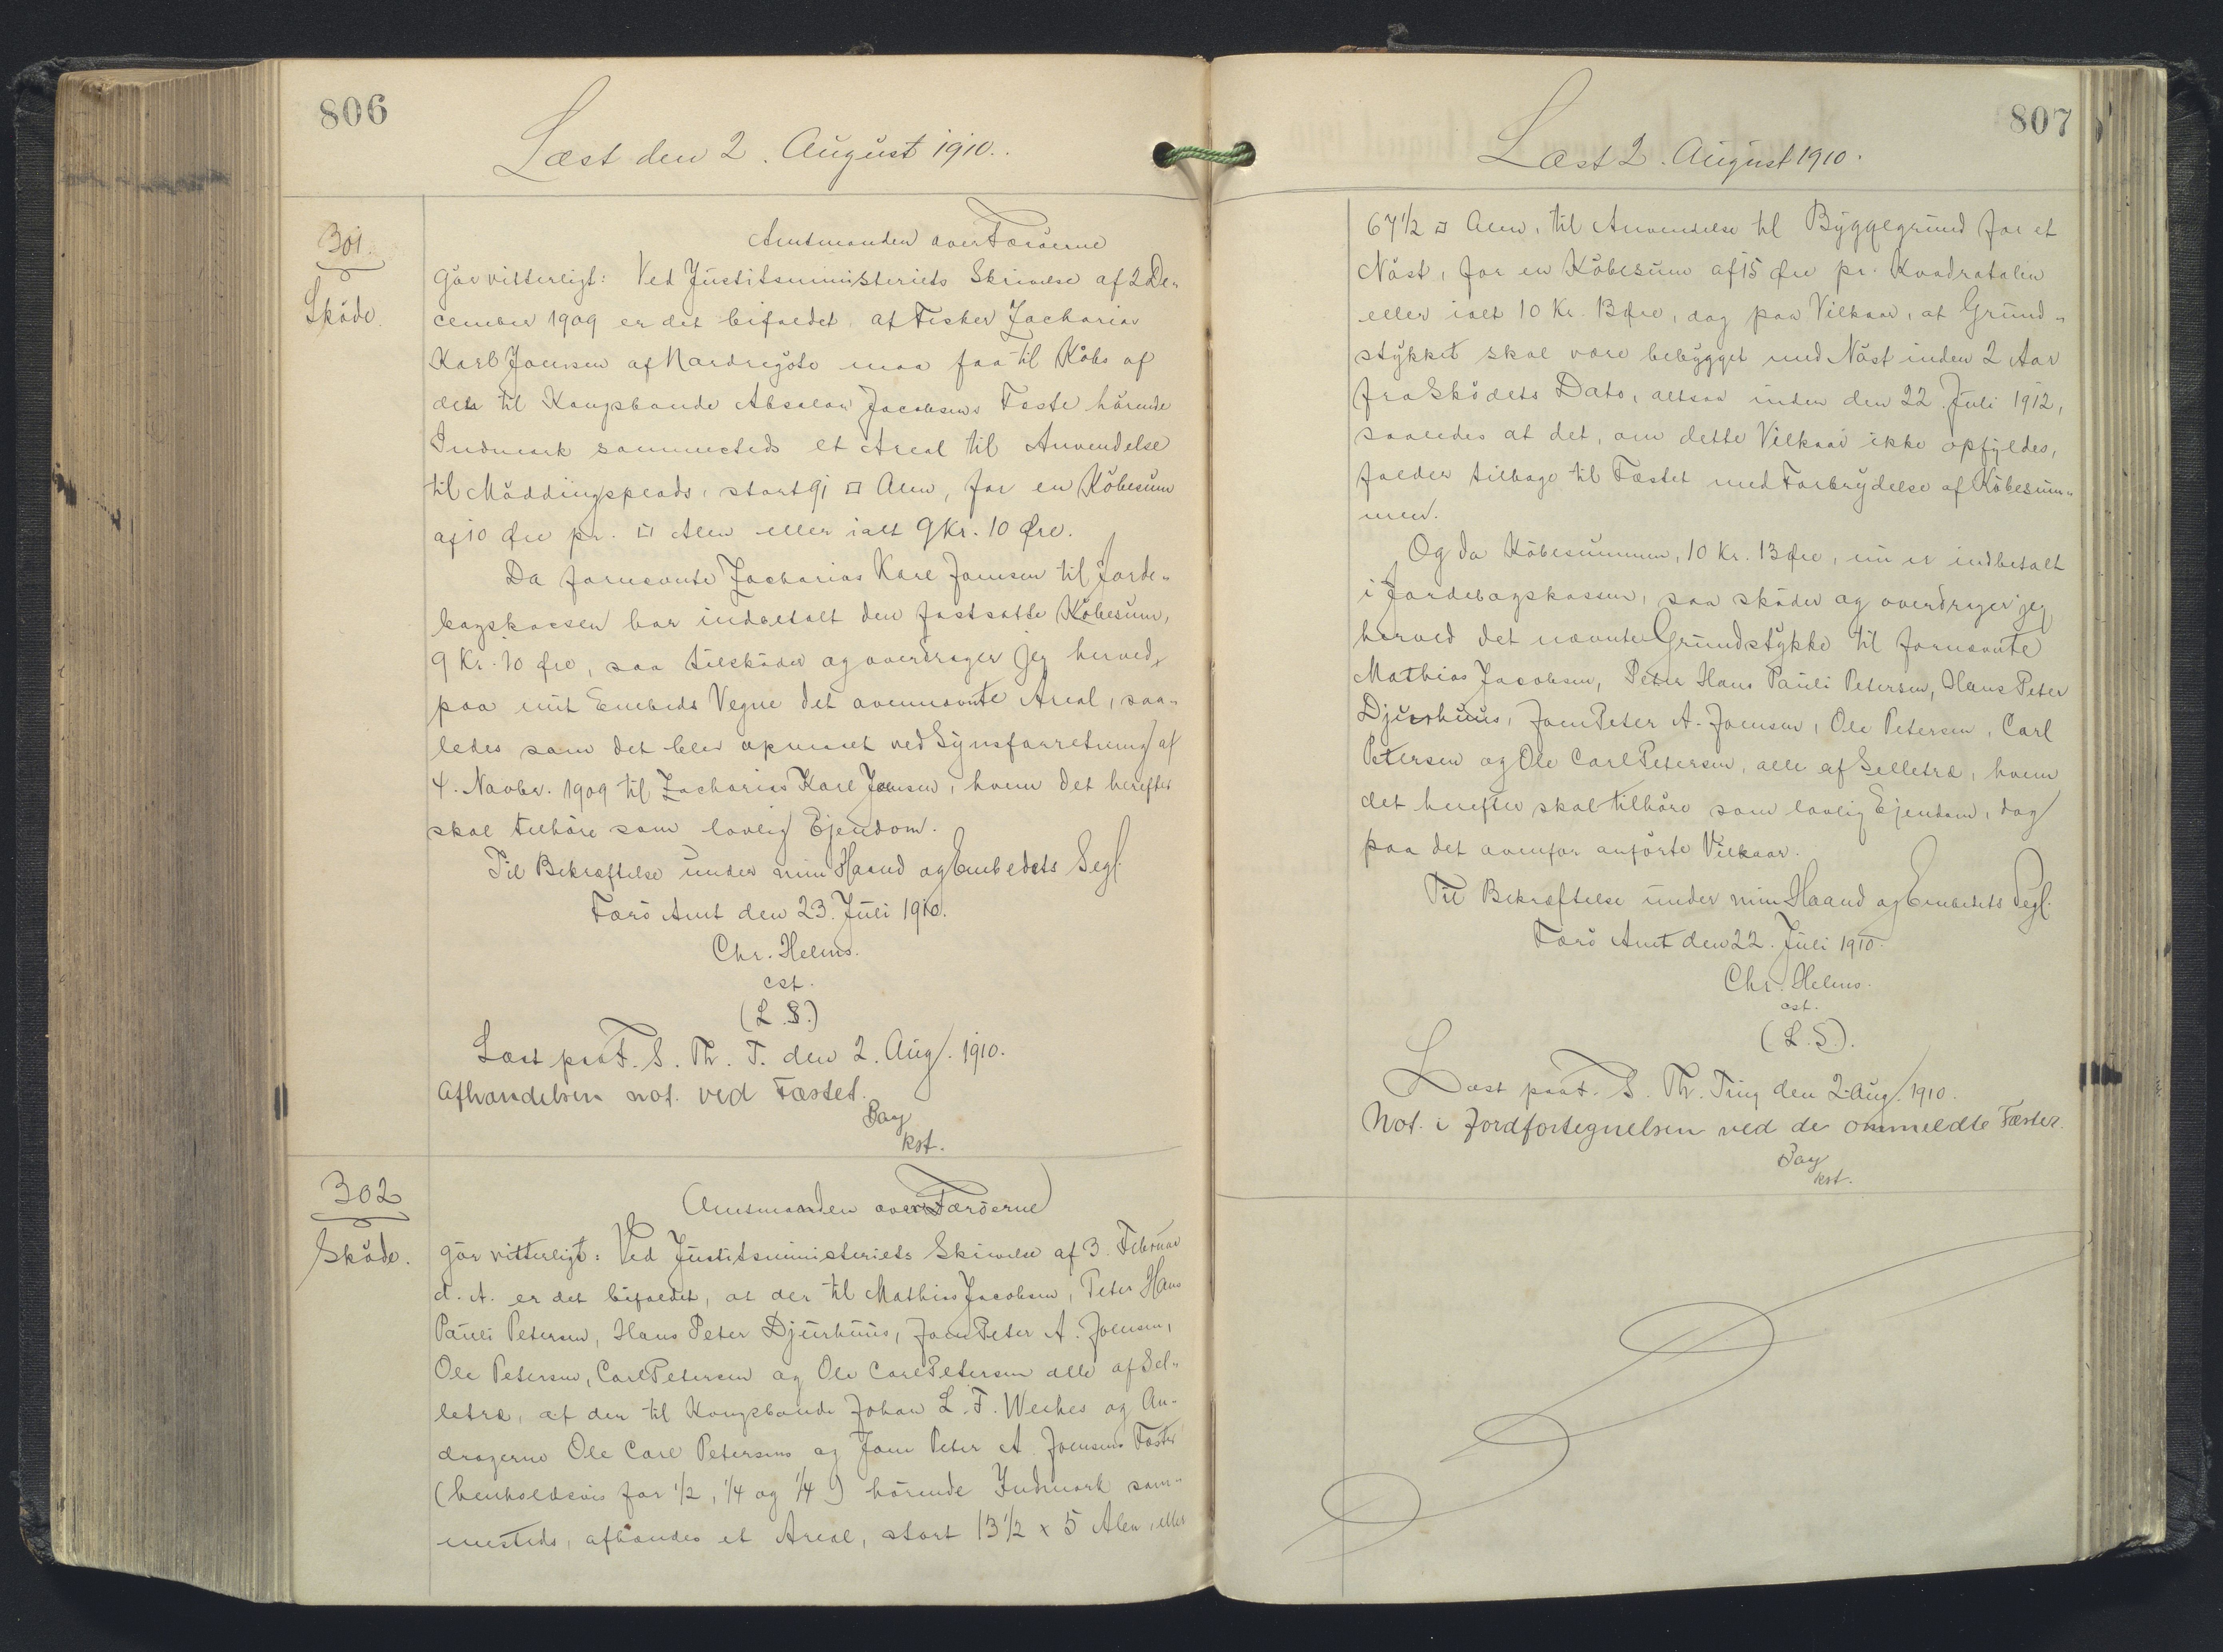 806
Læst den 2. August 1910.
301.
Sköde.
Amtmanden over Færöerne
gör vitterligt: Ved Justitsministeriets Skrivelse af 2 De-
cember 1909 er det bifaldet, at Fisker Zacharias
Karl Joensen af Nordregöte maa faa til Köbs af
den til Kongsbonde Absalon Jacobsens Fæste hörende
Indmark sammesteds et Areal til Anvendelse
til Möddingsplads, stort 91 □ Alen, for en Köbesum
af 10 Øre pr. □ Alen eller ialt 9 Kr. 10 Øre.
Da fornævnte Zacharias Karl Joensen til Jorde-
bogskassen har indbetalt den fastsatte Köbesum,
9 Kr. 10 Øre, saa tilsköder og overdrager jeg herved
paa mit Embeds Vegne det ovennævnte Areal, saa-
ledes som det blev opmaalt ved Synsforretning af
4. Novbr. 1909 til Zacharias Karl Joensen, hvem det herefter
skal tilhöre som lovlig Ejendom.
Til Bekræftelse under min Haand og Embedets Segl.
Færö Amt den 23. Juli 1910.
Chr. Helms.
cst.
(L.S.)
Læst paa F. S. Th. T. den 2. Aug. 1910.
Afhændelsen not. ved Fæstet.
Bay
kst.
302
Sköde.
Amtmanden over Færöerne
gör vitterligt: Ved Justitsministeriets Skrivelse af 3. Februar
d. A. er det bifaldet, at der til Mathias Jacobsen, Peter Hans
Pauli Petersen, Hans Peter Djurhuus, Joen Peter A. Joensen,
Ole Petersen, Carl Petersen og Ole Carl Petersen alle af Sel-
letræ, af den til Kongsbonde Johan L. F. Weihes og An-
dragerne Ole Carl Petersens og Joen Peter A. Joensens Fæster
(henholdsvis for 1/2, 1/4 og 1/4) hörende Indmark sam-
mesteds, afhændes et Areal, stort 13 1/2 x 5 Alen, eller
807
Læst 2. August 1910.
67 1/2 □ Alen, til Anvendelse til Byggegrund for et
Nöst, for en Köbesum af 15 Øre pr. Kvadratalen
eller ialt 10 Kr. 13 Øre, dog paa Vilkaar, at Grund-
stykket skal være bebygget med Nöst inden 2 Aar
fra Sködets Dato, altsaa inden den 22. Juli 1912,
saaledes at det, om dette Vilkaar ikke opfyldes,
falder tilbage til Fæstet med Forbrydelse af Köbesum-
men.
Og da Köbesummen, 10 Kr. 13 Øre, nu er indbetalt
i Jordebogskassen, saa sköder og overdrager jeg
herved det nævnte Grundstykke til fornævnte
Mathias Jacobsen, Peter Hans Pauli Petersen, Hans Peter
Djurhuus, Joen Peter A. Joensen, Ole Petersen, Carl
Petersen og Ole Carl Petersen, alle af Selletræ, hvem
det herefter skal tilhöre som lovlig Ejendom, dog
paa det ovenfor anförte Vilkaar.
Til Bekræftelse under min Haand og Embedets Segl.
Færö Amt den 22. Juli 1910.
Chr. Helms.
cst.
(L.S.).
Læst paa F. S. Th. Ting den 2. Aug. 1910.
Not. i Jordfortegnelsen ved de ommeldte Fæster.
Bay
kst.